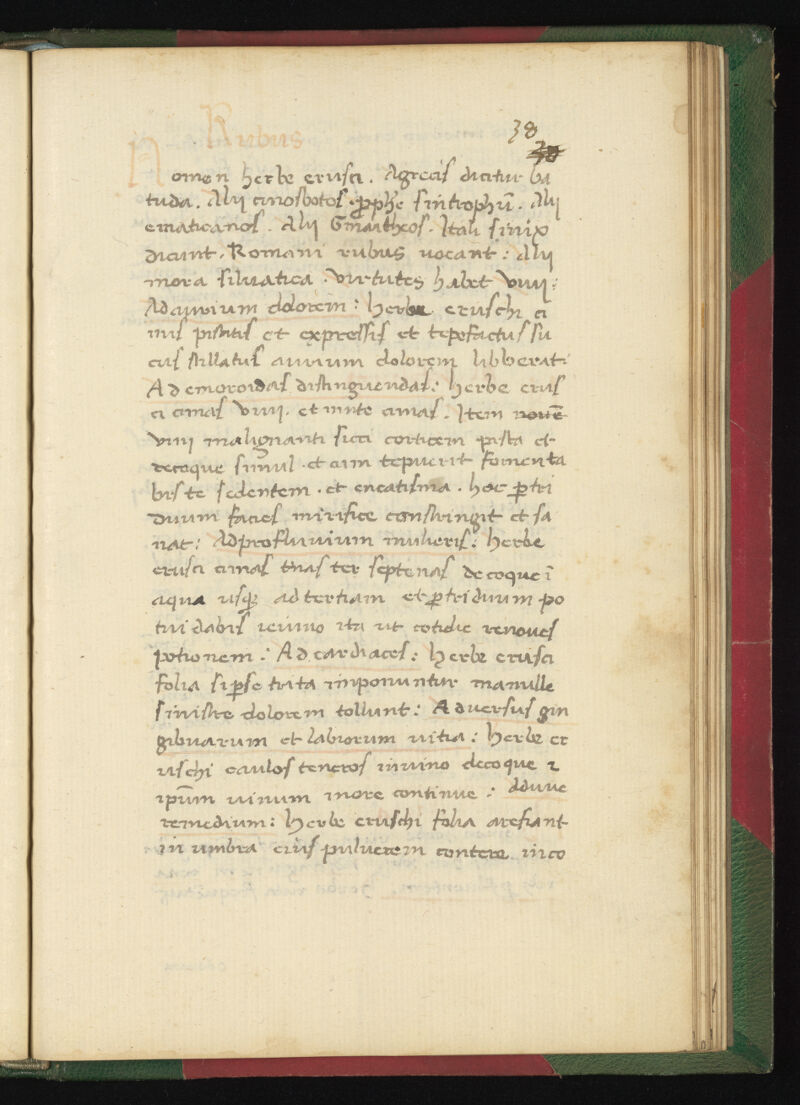 Rubus
38
Nomen herbe erusci. Agrecis dicitur ba
tuda. Alij cinosbotos. pphe sintrophū. Alij
ematicanos. Alij Itali sinix
dicunt. Romani rubus uocant: Alij
mora siluatica. Virtutes habet viiij:
Ad aurium dolorem: herbe eruschi ci
mis pistatis et expressis et tepefactus su
cus stillatus aurium dolorem libberat:
Ad emoroidas distinguendas: herbe erus
ci cimas viiij. et cimas. Item
viiij malignanti sicci corticem pista et
decoque simul. et cum tepuerit fomenta
bis te sedentem. et encatisma. hoc p tri
duum facies mirifice constringit et sa
nat: Ad profluuium mulieris: herbe
erusci cimas ter septenas decoque ĩ
aqua usq; ad tertiam et p triduum po
tui dabis ieiuno ita ut cotidie renoues
potionem: Ad cardiaces: herbe erusci
folia si p se trita imponuntur mamille
sinistre dolorem tollunt: Aduersus gin
gibuarum et labiorum uitia: herbe er
uschi caulos teneros in uino decoque 2
ipsum uinum more continue:
remedium: herbe eruschi folia arefiant
in umbra eius puluerem contere inco